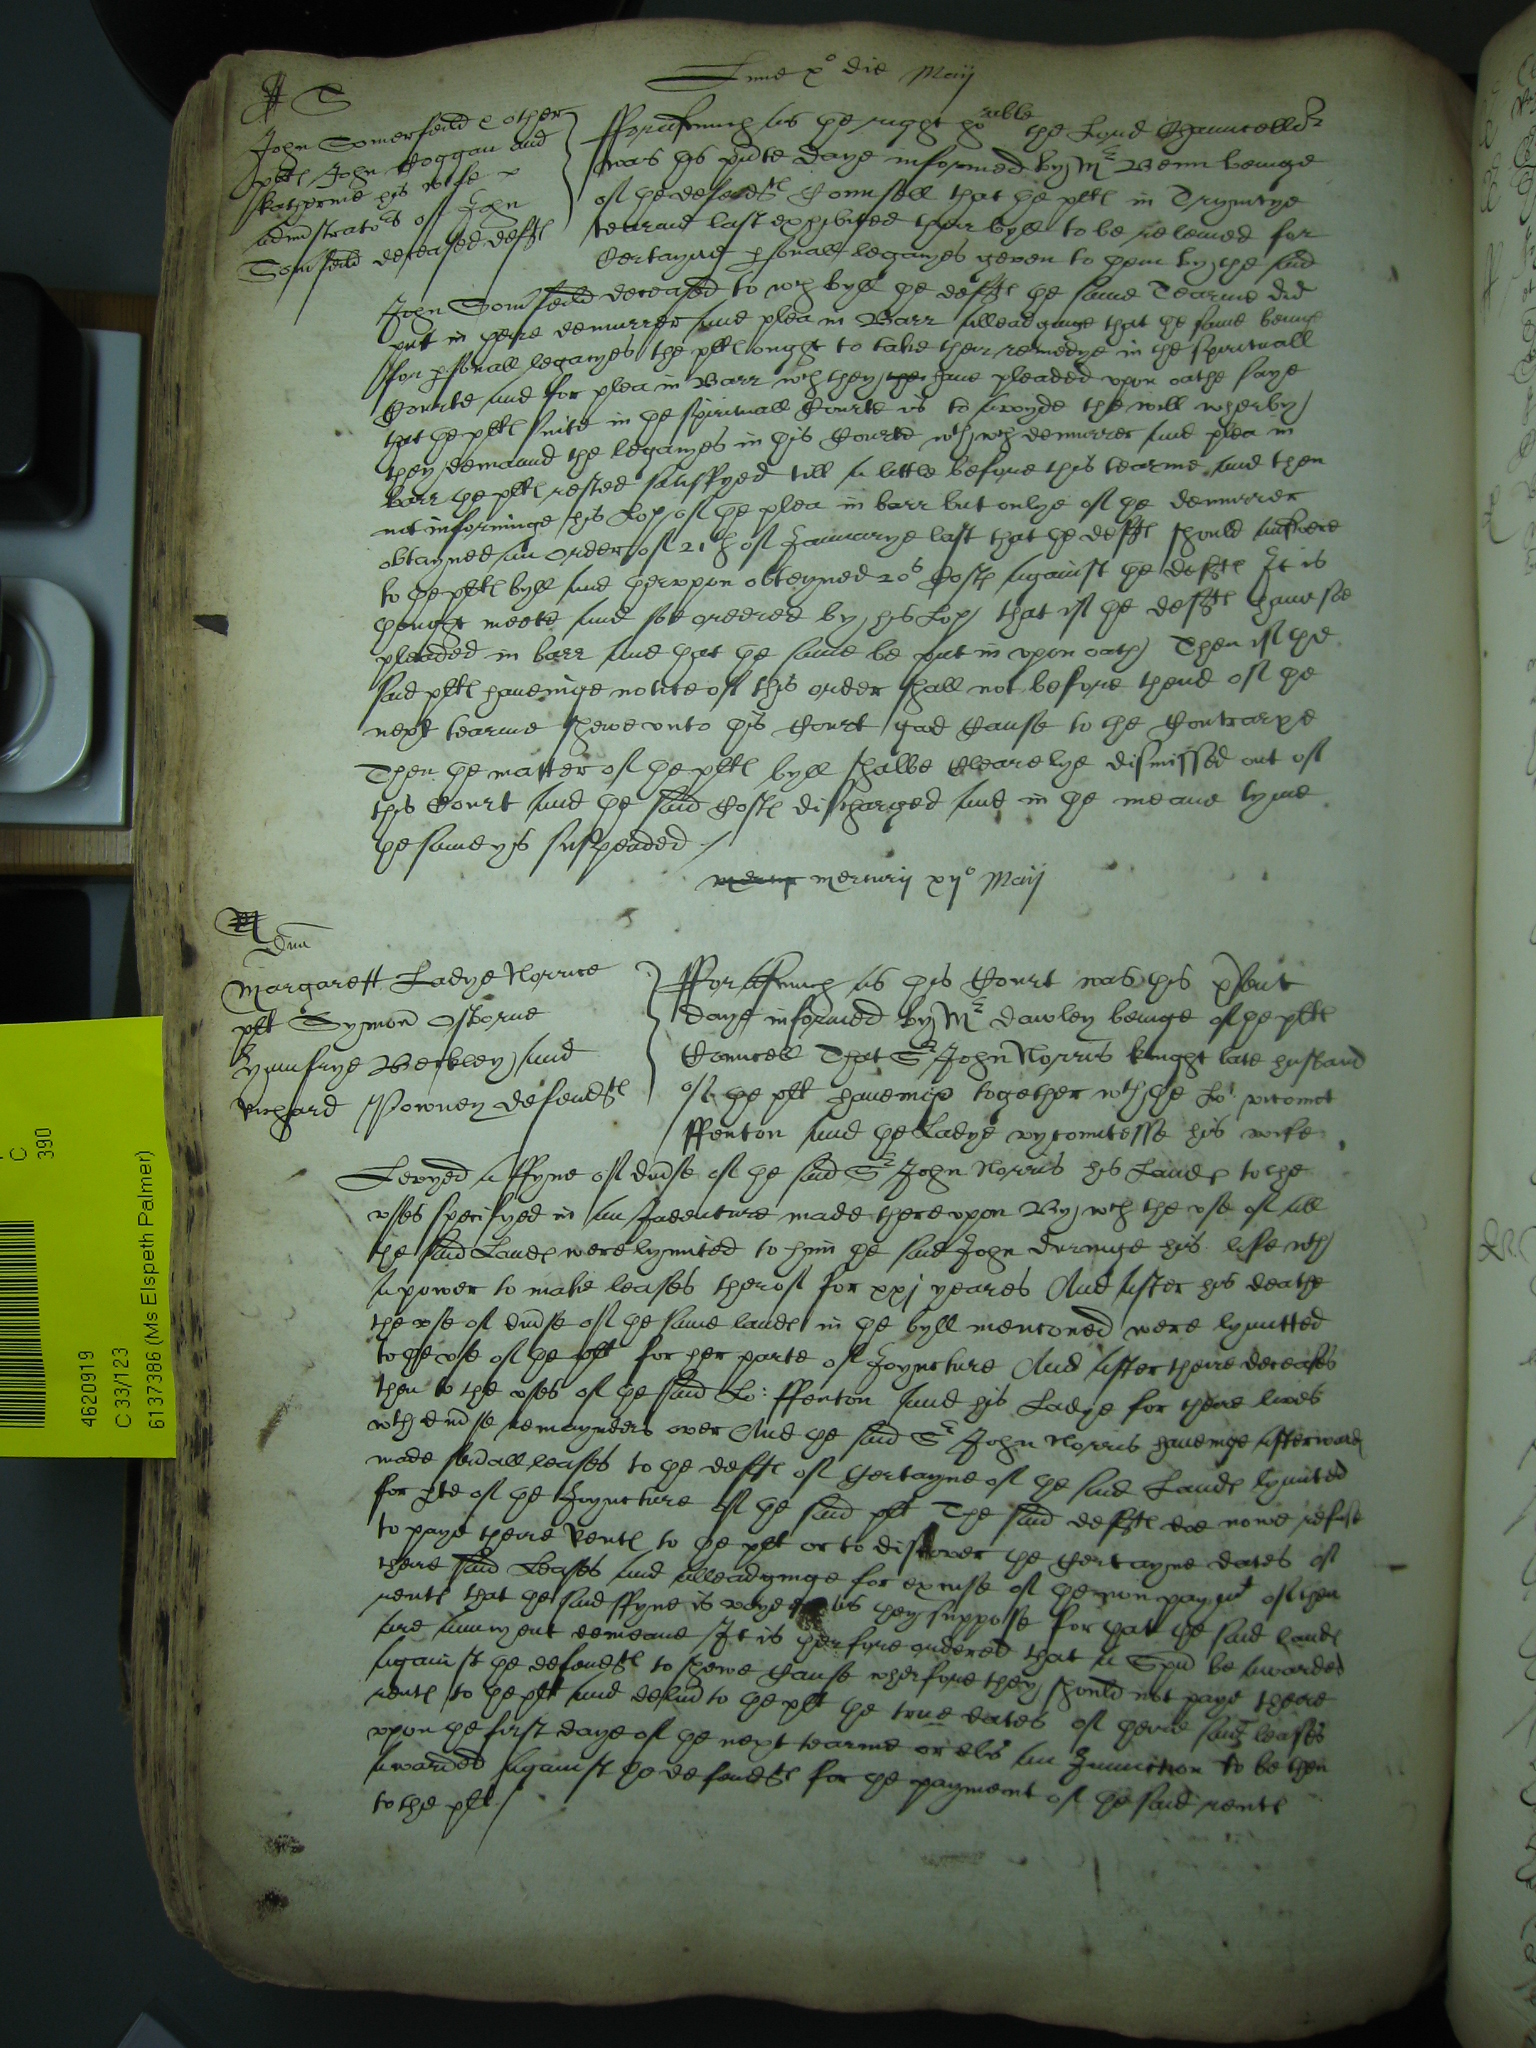 Lune x° die Maij
S
John Somerfeild & other
pltes John Hoggan and
Katherine his wife
administrators of John
Somerfeild deceased defts
fforasmuch as the right hoable the Lord Chauncellor
was this pnte daye informed by Mr Benn beinge
of the defendts Counsell that the pltes in Trynitye
tearme last exhibited their byll to be releived for
Certayne psonall legacyes geven to them by the said
John Somfeild deceased to wch byll the defts the same Tearme did
put in their demurrer and plea in Barr alleadginge that the same beinge
for psonall legacyes the pltes ought to take their remedye in the spirituall
Courte and for plea in Barr wch they have pleaded vpon oathe saye
that the pltes suite in the spirituall Courte is to avoyde the will wherby
they demaund the legacyes in this Courte wth wch demurrer and plea in
barr the pltes rested satisfyed till a little before this tearme and then
not informinge his Lop of the plea in barr but onlye of the demurrer
obtayned an order of 21th of Januarye last that the defts should answere
to the pltes byll and therupon obteyned 20s Costes against the defts It is
thought meete and soe ordered by his Lop that if the defts have soe
pleaded in barr and that the same be put in vpon oath Then if the
said pltes haveinge notice of this order shall not before thend of the
next tearme shewe vnto this Court good Cause to the Contrarye
Then the matter of the pltes byll shalbe Clearelye dismissed out of
this Court and the said Costes discharged and in the meane tyme
the same ys suspended
Mercurij xij° Maij
Dna
Margarett Ladye Norrice
plt Symon Osborne
Humfrye Berkley and
Richard Powney defendts
fforasmuch as this Court was this psent
daye informed by Mr Dawley beinge of the pltes
Councell That Sr John Norris knight late husband
of the plt haveinge together wth the Lo: vicomt
ffenton and the Ladye vycomtesse his wife
Levyed a ffyne of divse of the said Sr John Norris his Landes to the
vses specifyed in an Indenture made therevpon By wch the vse of all
the said Landes were lymited to hym the said John duringe his life wth
a power to make leases therof for xxj yeares And after his deathe
the vse of divse of the same landes in the byll mentioned were lymitted
to the vse of the plt for her parte of Joyncture And after theire deceases
then to the vses of the said Lo: ffenton and his Ladye for there lives
wth divse remaynders over And the said Sr John Norris haveinge afterwards
made seuall leases to the defts of Certayne of the said Landes lymited
for pte of the Joyncture of the said plt The said defts doe nowe refuse
to paye theire Rentes to the plt or to discover the Certayne dates of
there said Leases and alleadginge for excuse of the non paymt of then
rentes that the said ffyne is voyed as they suppose for that the said landes
are auncyent demeane It is therfore ordered that a Spna be awarded
against the defendts to shewe Cause wherfore they should not paye there
rentes to the plt and delivd to the plt the true dates of there said leases
vpon the first daye of the next tearme or els an Iniunction to be then
awarded against the defendts for the payment of the said rentes
to the plt
C
390
4620919
C 33/123
6137386 (Ms Elspeth Palmer)